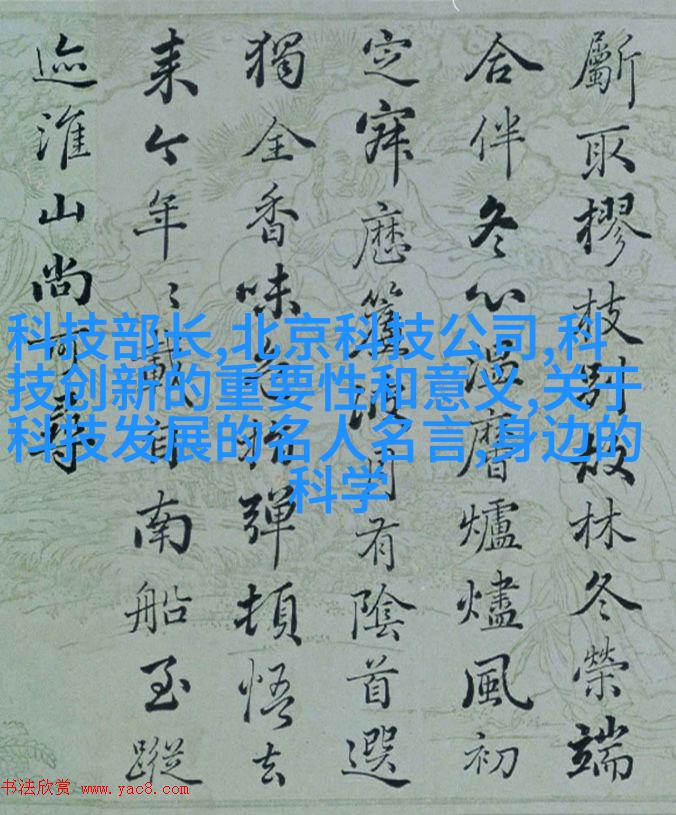 斸取樛枝別故林冬榮端
合伴冬心温磨爐燼風初
定寐歷籩浪月有陰首選
獨全香味超指彈頓悟去
来今年〻載自南船至蹤
迹淮山尚可尋
科技部长,北京科技公司,科
技创新的重要性和意义,关于
科技发展的名人名言,身边的
科学
书法欣赏 www.yac8.com